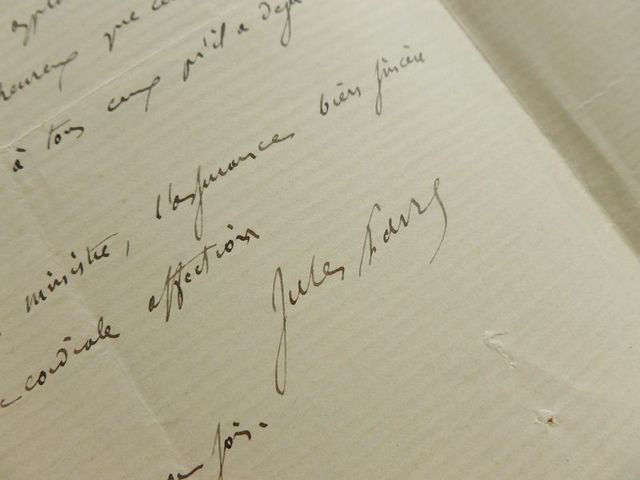 que
à tous ceux qu'il a déjà
ministre, l'assurance bien sincère
cordiale affection
Jules Favre
fois.